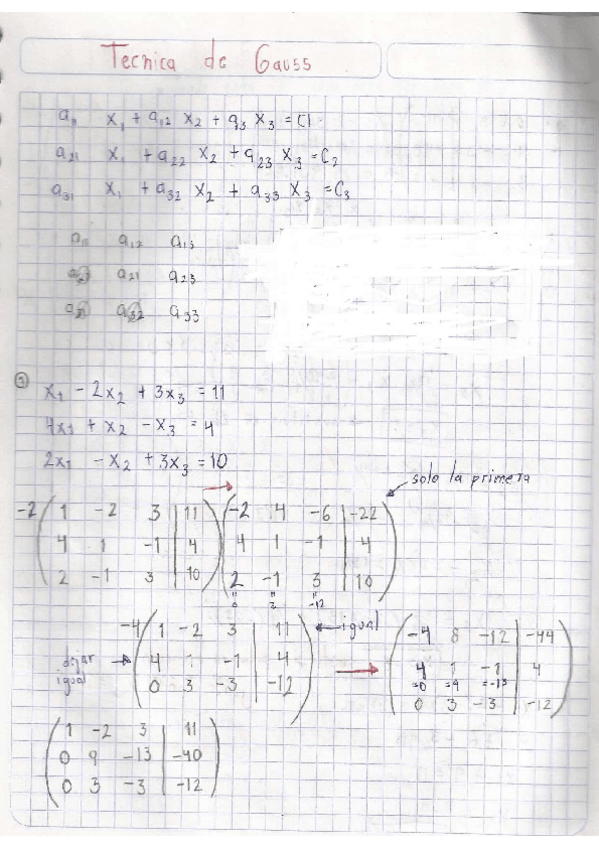 Tecnica de Gauss
a11 x1 + a12 x2 + a13 x3 = C1
a21 x1 + a22 x2 + a23 x3 = C2
a31 x1 + a32 x2 + a33 x3 = C3
a11 a12 a13
a21 a21 a23
a31 a32 a33
① x1 - 2x2 + 3x3 = 11
4x1 + x2 - x3 = 4
2x1 - x2 + 3x3 = 10
solo la primera
-2 ( 1 -2 3 | 11 ) ( -2 4 -6 | -22 )
4 1 -1 | 4 4 1 -1 | 4
2 -1 3 | 10 2 -1 3 | 10
=0 =-12
-4 ( 1 -2 3 | 11 ) igual ( -4 8 -12 | -44 )
dejar igual 4 1 -1 | 4 4 1 -1 | 4
=0 =9 =-13
0 3 -3 | -12 0 3 -3 | -12
1 -2 3 | 11
0 9 -13 | -40
0 3 -3 | -12